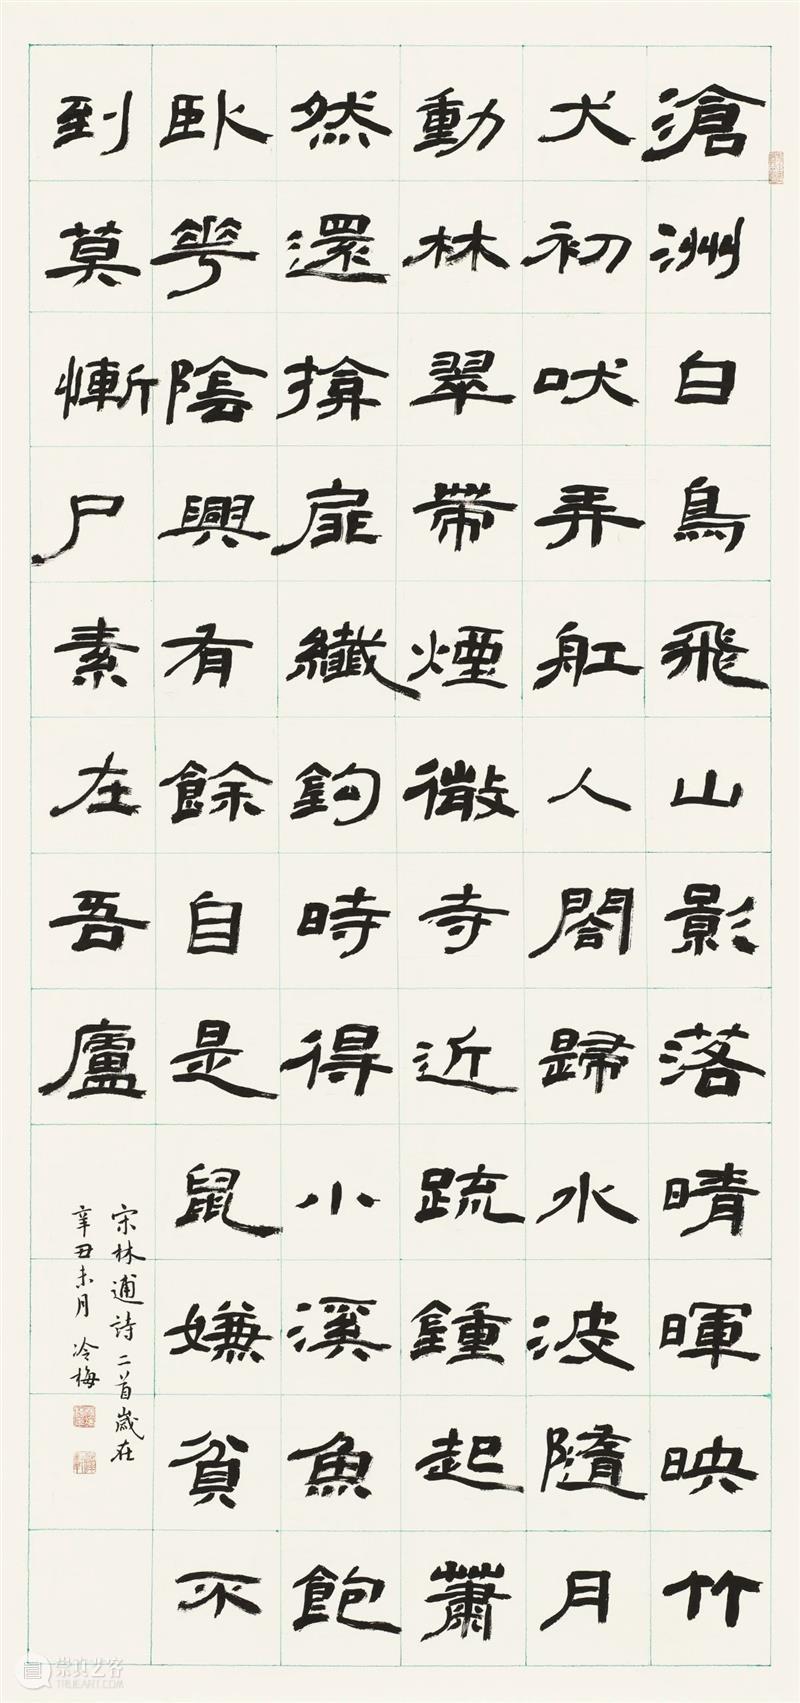 滄洲白鳥飛山影落晴暉映竹
犬初吠弄舡人閤歸水波隨月
動林翠帶煙微寺近疏鍾起蕭
然還揜扉纖鉤時得小溪魚飽
臥華陰興有餘自是鼠嫌貧不
到莫慚尸素在吾廬
宋林逋詩二首歲在
辛丑未月 冷梅
崇真艺客
WWW.TRUEART.COM